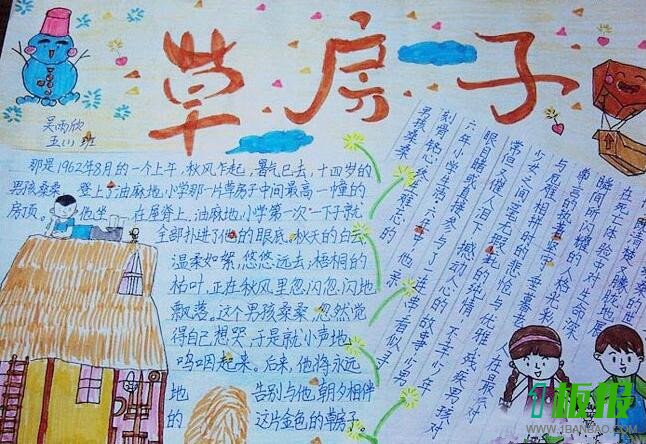 草房子
吴雨欣
五(1)班
那是1962年8月的一个上午,秋风乍起,暑气已去,十四岁的
男孩桑桑,登上了油麻地小学那一片草房子中间最高一幢的
房顶。他坐在屋脊上,油麻地小学第一次一下子就
全部扑进了他的眼底。秋天的白云,
温柔如絮,悠悠远去;梧桐的
枯叶,正在秋风里忽闪忽闪地
飘落。这个男孩桑桑,忽然觉
得自己想哭,于是就小声地
呜咽起来。后来,他将永远
地告别与他朝夕相伴
的这片金色的草房子。
男孩桑桑
刻骨铭心,终生难忘的
六年小学生活。六年中,他亲
眼目睹或直接参与了一连串看似寻
常但又催人泪下、撼动人心的故事:少男
少女之间毫无瑕疵的纯情,不幸少年
与厄运相拼时的悲怆与优雅,残疾男孩对
尊严的执着坚守
瞬间所闪耀的人格光
在死亡体验中对生命深
1板报
WWW.1BANBAO.COM